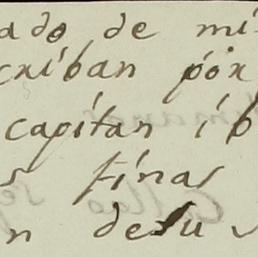 ado de mi
criban por
capitan ib
s finas
n desus